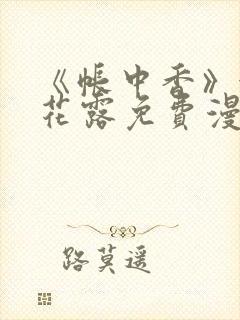 《帐中香》
花露免费漫
路莫遥